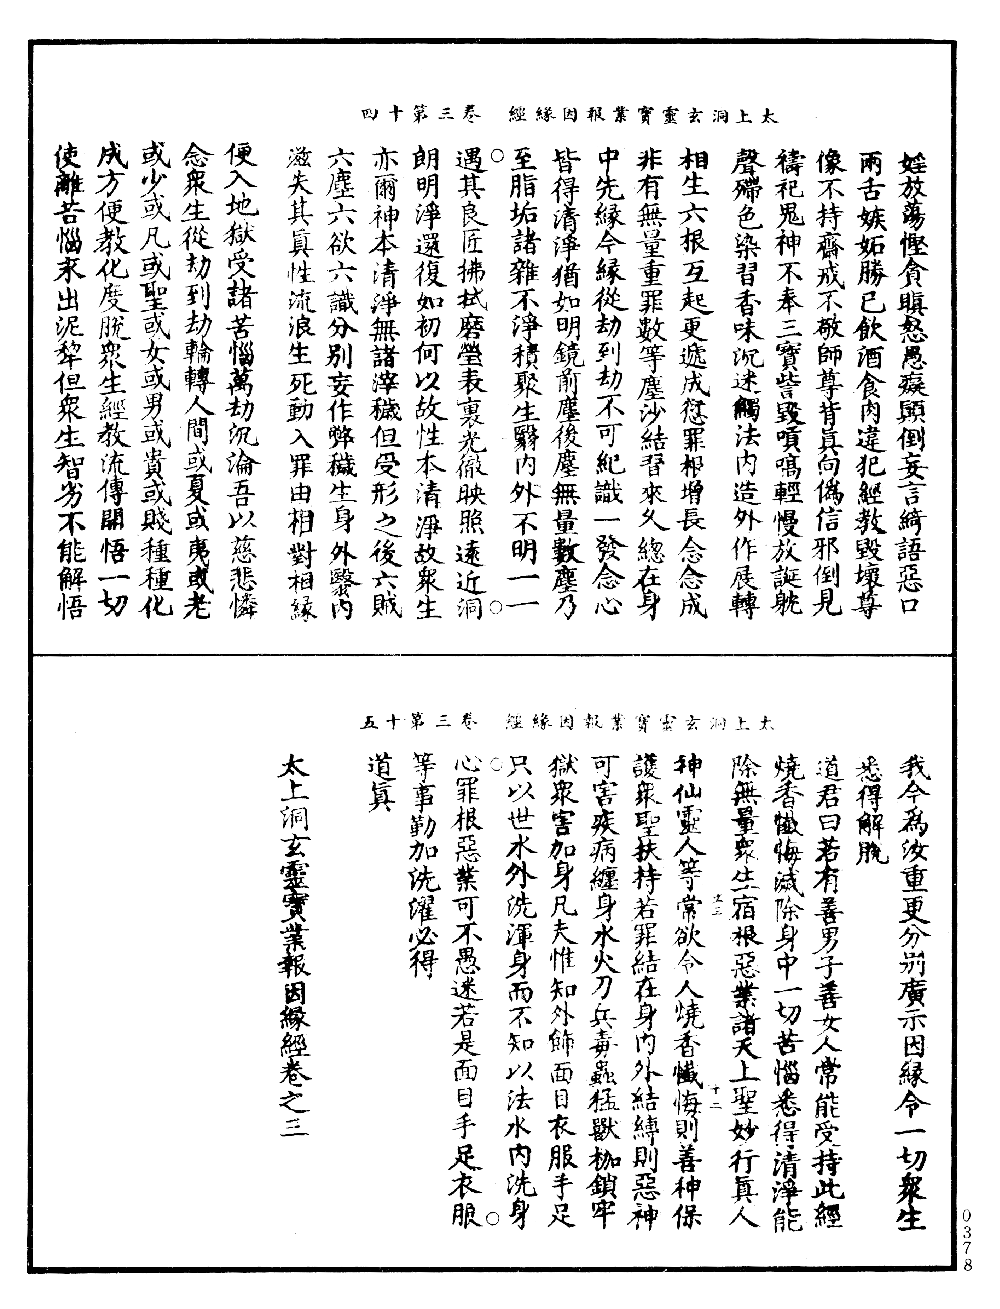 太上洞玄靈寶業報因緣經 卷三第十四
婬放蕩慳貪瞋怒愚癡顛倒妄言綺語惡口
兩舌嫉妬勝已飲酒食肉違犯經教毀壞尊
像不持齋戒不敬師尊背真向偽信邪倒見
禱祀鬼神不奉三寶訾毀嗔嗃輕慢放誕躭
聲滯色染習香味沉迷觸法內造外作展轉
相生六根互起更遞成愆罪根增長念念成
非有無量重罪數等塵沙結習來久總在身
中先緣今緣從劫到劫不可紀識一發念心
皆得清淨猶如明鏡前塵後塵無量數塵乃
至脂垢諸雜不淨積聚生翳內外不明一一
遇其良匠拂拭磨瑩表裏光徹映照遠近洞
朗明淨還復如初何以故性本清淨故衆生
亦爾神本清淨無諸滓穢但受形之後六賊
六塵六欲六識分別妄作弊穢生身外翳內
滋失其真性流浪生死動入罪由相對相緣
便入地獄受諸苦惱萬劫沉淪吾以慈悲憐
念衆生從劫到劫輪轉人間或夏或夷或老
或少或凡或聖或女或男或貴或賤種種化
成方便教化度脫衆生經教流傳開悟一切
使離苦惱來出泥犂但衆生智劣不能解悟
太上洞玄靈寶業報因緣經 卷三第十五
我今為汝重更分別廣示因緣令一切衆生
悉得解脫
道君曰若有善男子善女人常能受持此經
燒香懺悔滅除身中一切苦惱悉得清淨能
除無量衆生宿根惡業諸天上聖妙行真人
神仙靈人等常欲令人燒香懺悔則善神保
護衆聖扶持若罪結在身內外結縛則惡神
可害疾病纏身水火刀兵毒蟲猛獸枷鎖牢
獄衆害加身凡夫惟知外飾面目衣服手足
只以世水外洗渾身而不知以法水內洗身
心罪根惡業可不愚迷若是面目手足衣服
等事勤加洗濯必得
道真
太上洞玄靈寶業報因緣經卷之三
十二
0378